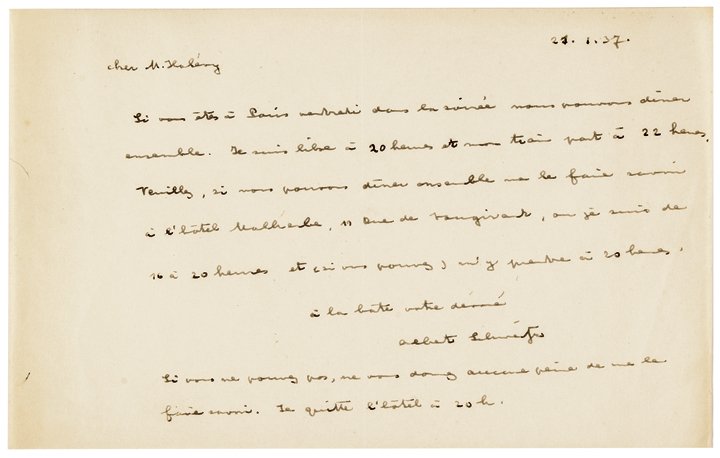 27.1.37.
cher M. Halévy
Si vous êtes à Paris vendredi dans la soirée nous pouvons dîner
ensemble. Je suis libre à 20 heures et mon train part à 22 heures.
Veuillez, si nous pouvons dîner ensemble me le faire savoir
à l'hôtel Malherbe, 11 Rue de Vaugirard, où je suis de
16 à 20 heures et (si vous pouvez) m'y prendre à 20 heures.
à la hâte votre dévoué
Albert Schweitzer
Si vous ne pouvez pas, ne vous donnez aucune peine de me le
faire savoir. Je quitte l'hôtel à 20 h.